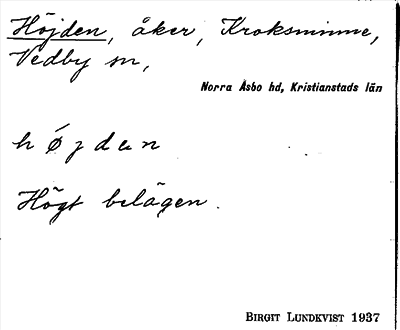 Höjden, åker, Kroksminne,
Vedby sn,
Norra Åsbo hd, Kristianstads län
højdan
Högt belägen.
BIRGIT LUNDKVIST 1937